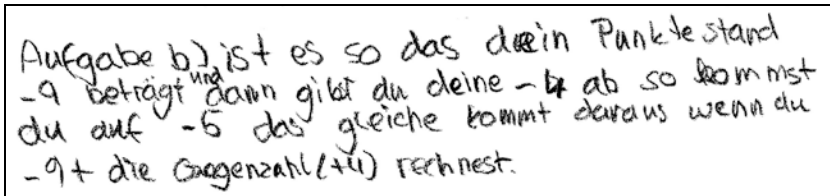 Aufgabe b) ist es so das dein Punktestand
-9 beträgt und dann gibt du deine -4 ab so kommst
du auf -5 das gleiche kommt daraus wenn du
-9+ die Gegenzahl (+4) rechnest.